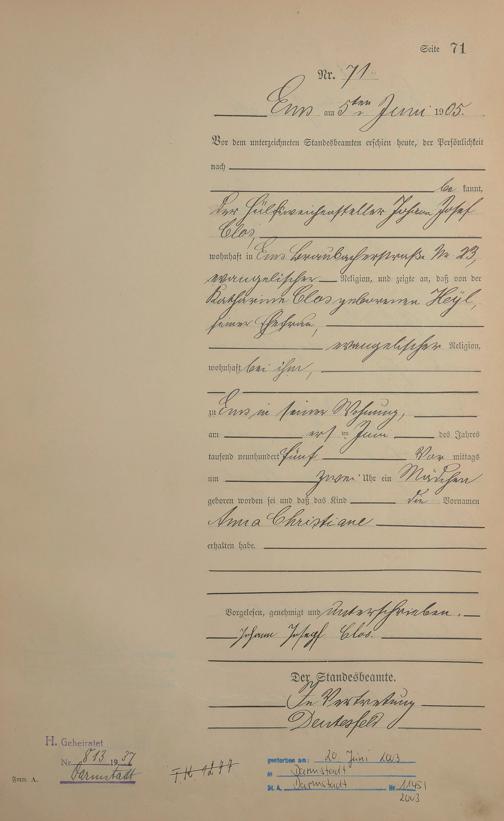 Seite 71
Nr. 71
Ems am 5ten Juni 1905.
Vor dem unterzeichneten Standesbeamten erschien heute, der Persönlichkeit
nach
be kannt,
der Hülfsweichensteller Johann Josef
Clos,
wohnhaft in Ems Braubacherstraße Nr 23,
evangelischer Religion, und zeigte an, daß von der
Katharine Clos geborenen Heyl,
seiner Ehefrau,
evangelischer Religion,
wohnhaft bei ihm,
zu Ems in seiner Wohnung,
am ersten Juni des Jahres
tausend neunhundert fünf Vor mittags
um zwei Uhr ein Mädchen
geboren worden sei und daß das Kind die Vornamen
Anna Christiane
erhalten habe.
Vorgelesen, genehmigt und unterschrieben.
Johann Josef Clos.
Der Standesbeamte.
In Vertretung
H. Geheiratet
Nr. 813 1937
Darmstadt
Form A.
gestorben am: 20. Juni 2003
in Darmstadt
St. A. Darmstadt Nr. 1145/
2003